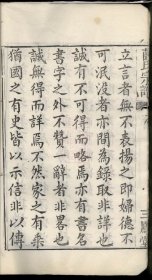 立言者無不表揚之即婦德不
可泯沒者亦間為錄取非譁也
誠有不可得而略焉亦有名
書字之外不贊一辭者非畧也
誠無得而詳焉不然家之有乘
猶國之有史皆以示信非以傳